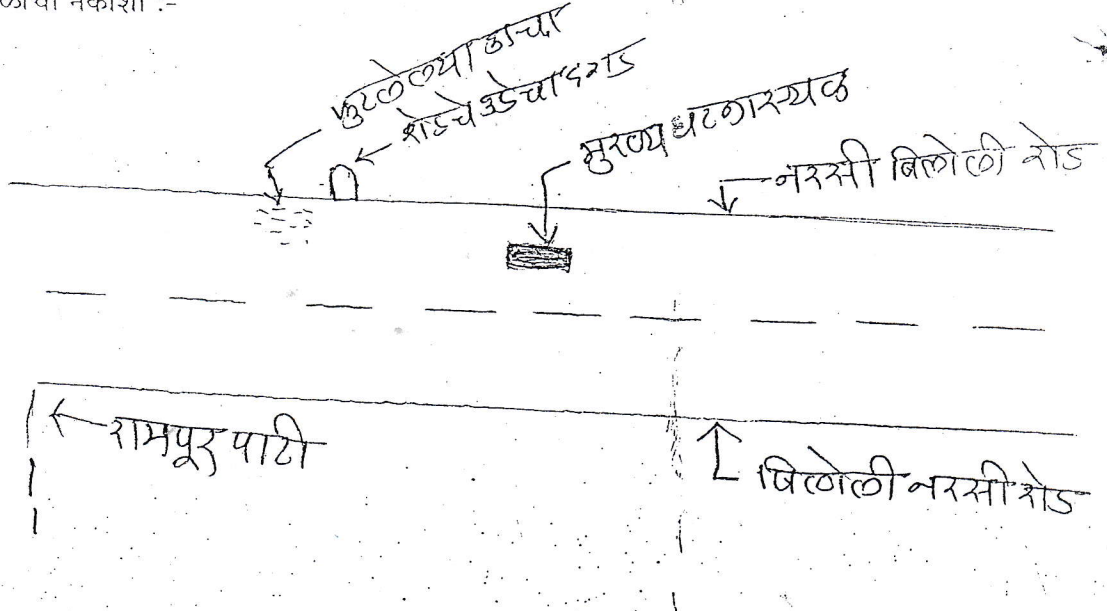 नकाशा :-
फुटलेल्या काचा
रोडचे कडेचा दगड
मुख्य घटनास्थळ
नरसी बिलोली रोड
रामपूर पाटी
बिलोली नरसी रोड